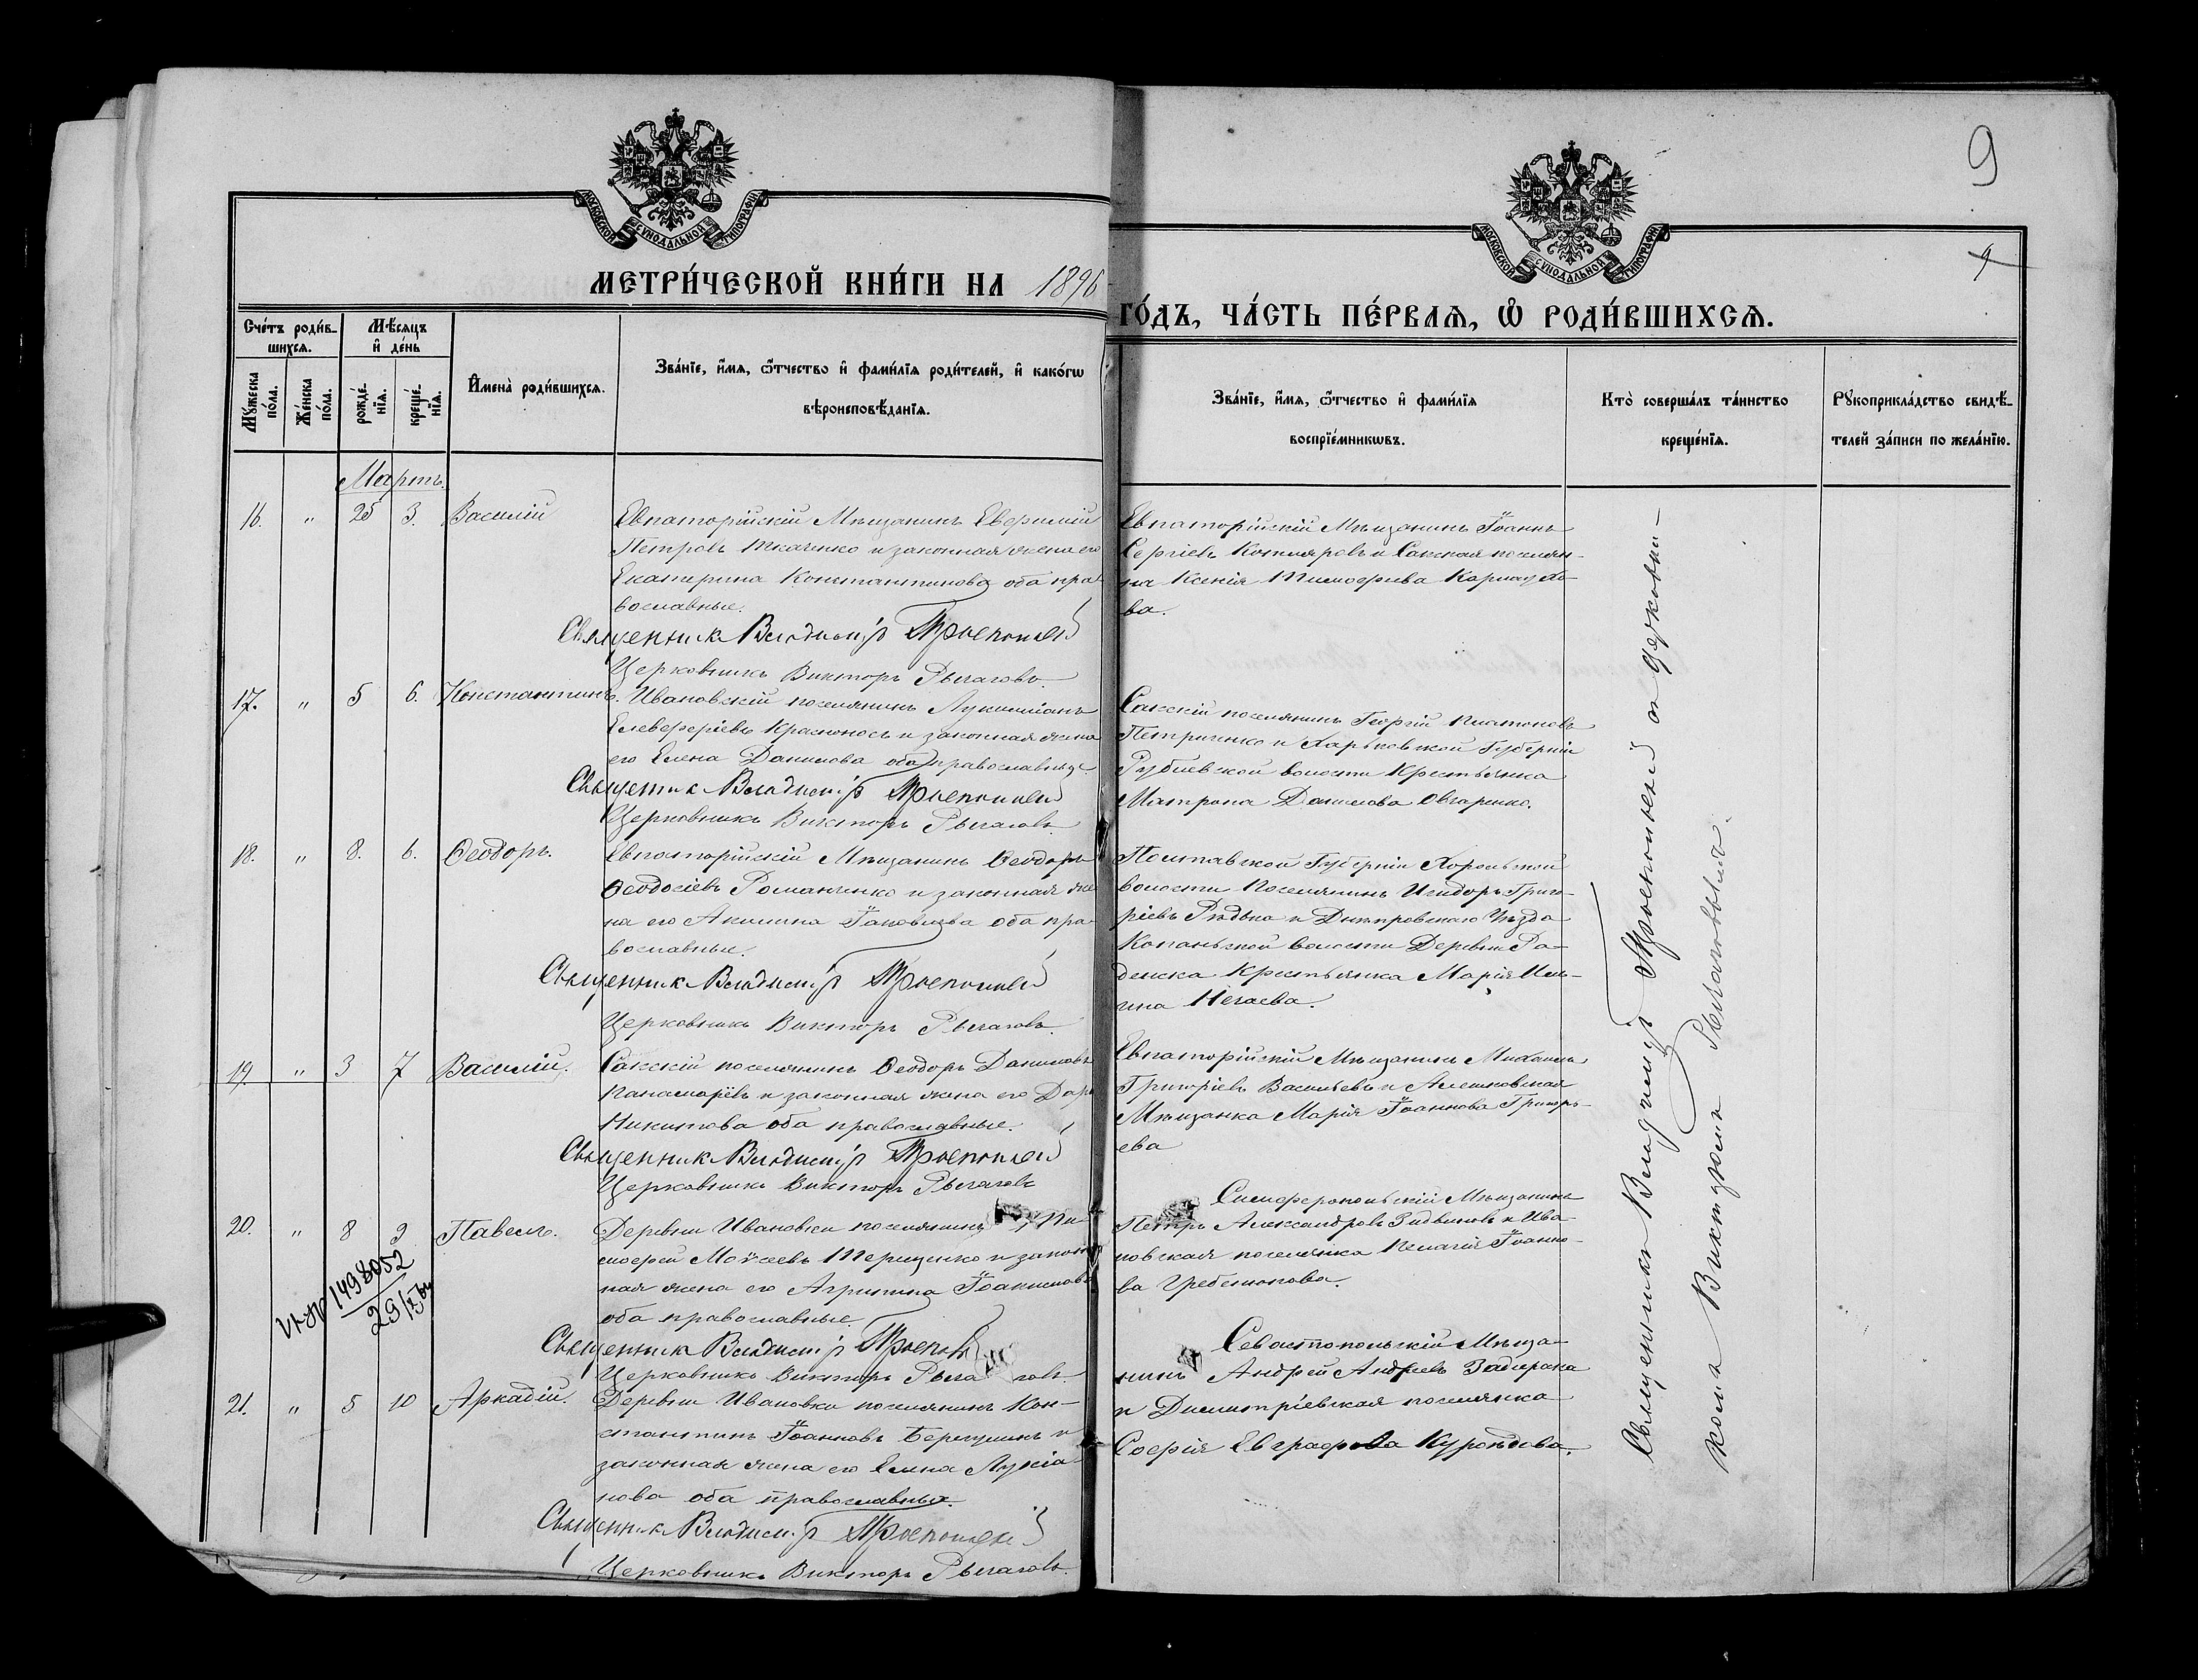 9
9
МОСКОВСКОЙ СѴНОДАЛЬНОЙ ТИПОГРАФІИ
МОСКОВСКОЙ СѴНОДАЛЬНОЙ ТИПОГРАФІИ
МЕТРИ́ЧЕСКОЙ КНИ́ГИ НА 1896
ГО́ДЪ, ЧА́СТЬ ПЕ́РВАѦ, Ѽ РОДИ́ВШИХСѦ.
Сче́тъ роди́в-
шихсѧ.
Мѣ́сѧцъ
и҆ де́нь
Мꙋ́жеска
по́ла.
Же́нска
по́ла.
рожде́-
нїѧ.
креще́-
нїѧ.
И҆мена̀ роди́вшихсѧ.
Зва́нїе, и҆́мѧ, ѻ҆́тчество и҆ фами́лїѧ роди́телей, и҆ како́гѡ
вѣроисповѣ́данїѧ.
Зва́нїе, и҆́мѧ, ѻ҆́тчество и҆ фами́лїѧ
воспрїе́мникѡвъ.
Кто̀ соверша́лъ та́инство
креще́нїѧ.
Рꙋкоприкла́дство свидѣ́-
телей за́писи по жела́нїю.
Мартъ.
16. " 25 3. Василій
Евпаторійскій Мѣщанинъ Евфимій
Петровъ Ткаченко и законная жена его
Екатерина Константинова оба пра-
вославные.
Священникъ Владиміръ
Церковникъ Викторъ Рычаговъ.
Евпаторійскій Мѣщанинъ Іоаннъ
Сергіевъ Котляровъ и Сакская поселян-
ка Ксенія Тимофеева Карнаухо-
ва.
17. " 5 6. Константинъ.
Ивановскій поселянинъ Лукиліанъ
Елевферіевъ Красноносъ и законная жена
его Елена Данилова оба православные.
Священникъ Владиміръ
Церковникъ Викторъ Рычаговъ
Сакскій поселянинъ Георгій Платоновъ
Петриченко и Харьковской Губерніи
волости Крестьянка
Матрона Данилова Овчаренко.
18. " 8. 6. Ѳеодоръ.
Евпаторійскій Мѣщанинъ Ѳеодоръ
Ѳеодосіевъ Романченко и законная же-
на его Акилина Іаковлева оба пра-
вославные.
Священникъ Владиміръ
Церковникъ Викторъ Рычаговъ.
Полтавской Губерніи Хорольской
волости Поселянинъ Исидоръ Григо-
ріевъ Рѣдька и Днѣпровскаго Уѣзда
Копаньской волости Деревни Ра-
денска Крестьянка Марія Иль-
ина Нечаева.
19. " 3 7 Василій.
Сакскій поселянинъ Ѳеодоръ Даниловъ
и законная жена его Дарь
Никитова оба православные.
Священникъ Владиміръ
Церковникъ Викторъ Рычаговъ
Евпаторійскій Мѣщанинъ Михаилъ
Григоріевъ Васильевъ и Алешковская
Мѣщанка Марія Іоаннова Григорь-
ева
20. " 8 9 Павелъ.
Деревни Ивановки поселянинъ Ти-
мофей Моѵсеевъ Терещенко и закон-
ная жена его Агрипина Іоакимова
оба православные.
Священникъ Владиміръ
Церковникъ Викторъ Рычаговъ.
Симферопольскій Мѣщанинъ
Петръ Александровъ и Ива-
новская поселянка Пелагія Іоанно-
ва Гребенюкова.
1498052
29
21. " 5 10 Аркадій.
Деревни Ивановки поселянинъ Кон-
стантинъ Іоанновъ и
законная жена его Елена Лукіа-
нова оба православные.
Священникъ Владиміръ
Церковникъ Викторъ Рычаговъ.
Севастопольскій Мѣща-
нинъ Андрей Андреевъ
и Димитріевская поселянка
Софія Евграфова
Священникъ Владиміръ съ церковни-
комъ Викторомъ Рычаговымъ.